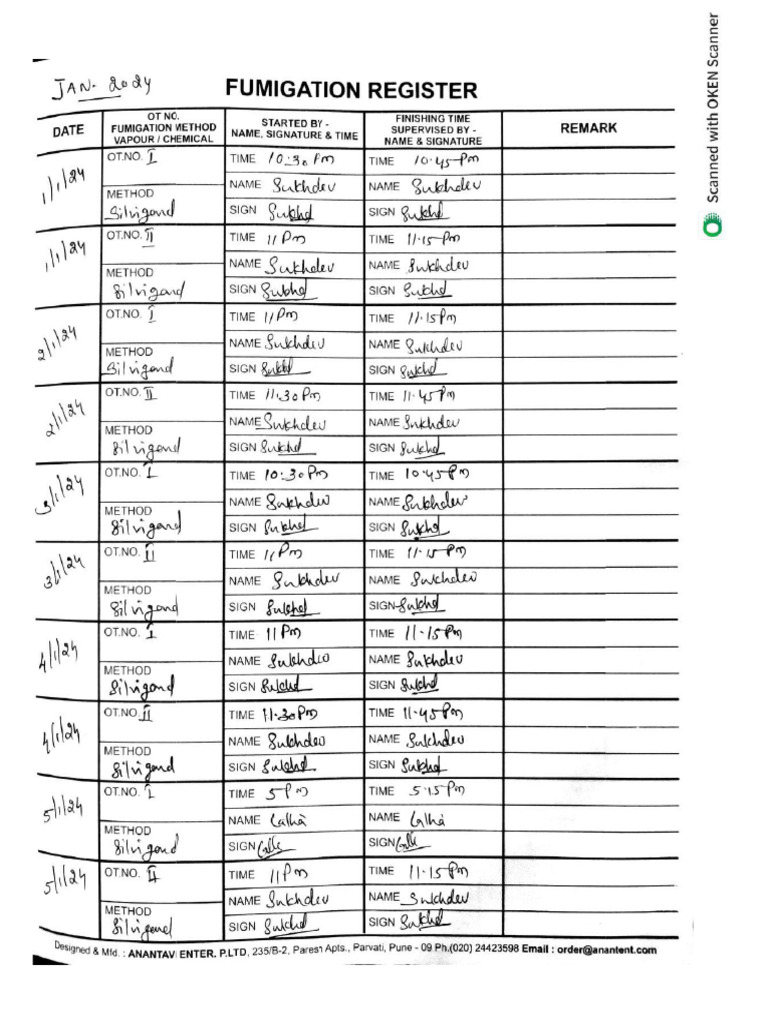 JAN. 2024
FUMIGATION REGISTER
DATE
OT NO.
FUMIGATION METHOD
VAPOUR / CHEMICAL
STARTED BY -
NAME, SIGNATURE & TIME
FINISHING TIME
SUPERVISED BY -
NAME & SIGNATURE
REMARK
1/1/24
OT.NO. I
METHOD
Silvigand
TIME 10:30 Pm
NAME Sukhdev
SIGN Sukhd
TIME 10.45 Pm
NAME Sukhdev
SIGN Sukhd
1/1/24
OT.NO. II
METHOD
Silvigand
TIME 11 Pm
NAME Sukhdev
SIGN Sukhd
TIME 11.15 Pm
NAME Sukhdev
SIGN Sukhd
2/1/24
OT.NO. I
METHOD
Silvigand
TIME 11 Pm
NAME Sukhdev
SIGN Sukhd
TIME 11.15 Pm
NAME Sukhdev
SIGN Sukhd
2/1/24
OT.NO. II
METHOD
Silvigand
TIME 11.30 Pm
NAME Sukhdev
SIGN Sukhd
TIME 11.45 Pm
NAME Sukhdev
SIGN Sukhd
3/1/24
OT.NO. I
METHOD
Silvigand
TIME 10:30 Pm
NAME Sukhdev
SIGN Sukhd
TIME 10.45 Pm
NAME Sukhdev
SIGN Sukhd
3/1/24
OT.NO. II
METHOD
Silvigand
TIME 11 Pm
NAME Sukhdev
SIGN Sukhd
TIME 11.15 Pm
NAME Sukhdev
SIGN Sukhd
4/1/24
OT.NO. I
METHOD
Silvigand
TIME 11 Pm
NAME Sukhdev
SIGN Sukhd
TIME 11.15 Pm
NAME Sukhdev
SIGN Sukhd
4/1/24
OT.NO. II
METHOD
Silvigand
TIME 11.30 Pm
NAME Sukhdev
SIGN Sukhd
TIME 11.45 Pm
NAME Sukhdev
SIGN Sukhd
5/1/24
OT.NO. I
METHOD
Silvigand
TIME 5 Pm
NAME Latha
SIGN
TIME 5.15 Pm
NAME Latha
SIGN
5/1/24
OT.NO. II
METHOD
Silvigand
TIME 11 Pm
NAME Sukhdev
SIGN Sukhd
TIME 11.15 Pm
NAME Sukhdev
SIGN Sukhd
Designed & Mfd. : ANANTAVI ENTER. P.LTD, 235/B-2, Paresh Apts., Parvati, Pune - 09 Ph.(020) 24423598 Email : order@anantent.com
Scanned with OKEN Scanner